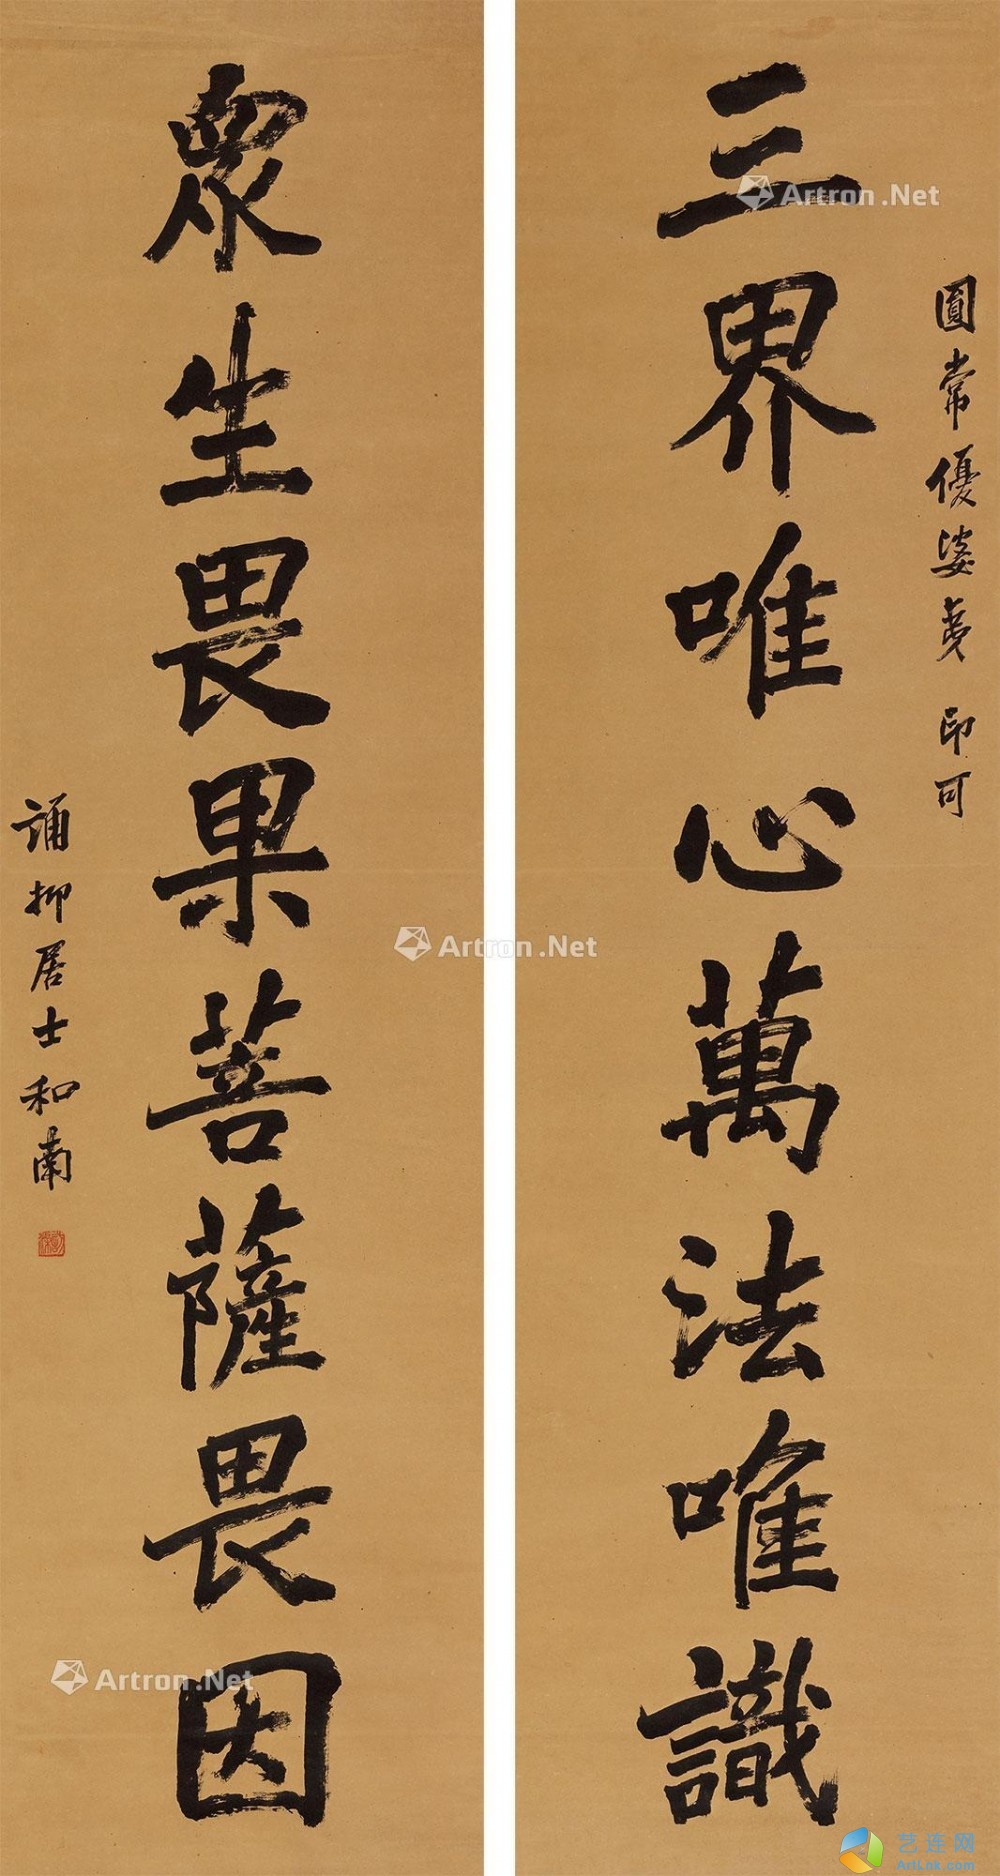 圓常優婆夷 印可
三界唯心萬法唯識
眾生畏果菩薩畏因
誦抑居士和南
Artron.Net
Artron.Net
Artron.Net
艺连网
ArtLnk.com